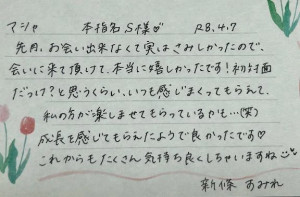 マシャ 本指名S様♡ R8.4.7
先月、お会い出来なくて実はさみしかったので、
会いに来て頂けて、本当に嬉しかったです!初対面
だっけ?と思うくらい、いつも感じまくってもらえて、
私の方が楽しませてもらっているかも…(笑)
成長を感じてもらえたようで良かったです♡
これからもたくさん気持ち良くしちゃいますね
新條 すみれ